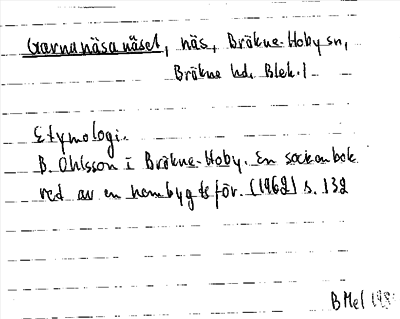 Garnanäsanäset, näs, Bräkne-Hoby sn,
Bräkne hd, Blek. l
Etymologi.
B. Ohlsson i Bräkne-Hoby. En sockenbok
red av en hembygdsför. (1962) s. 132
B Mel